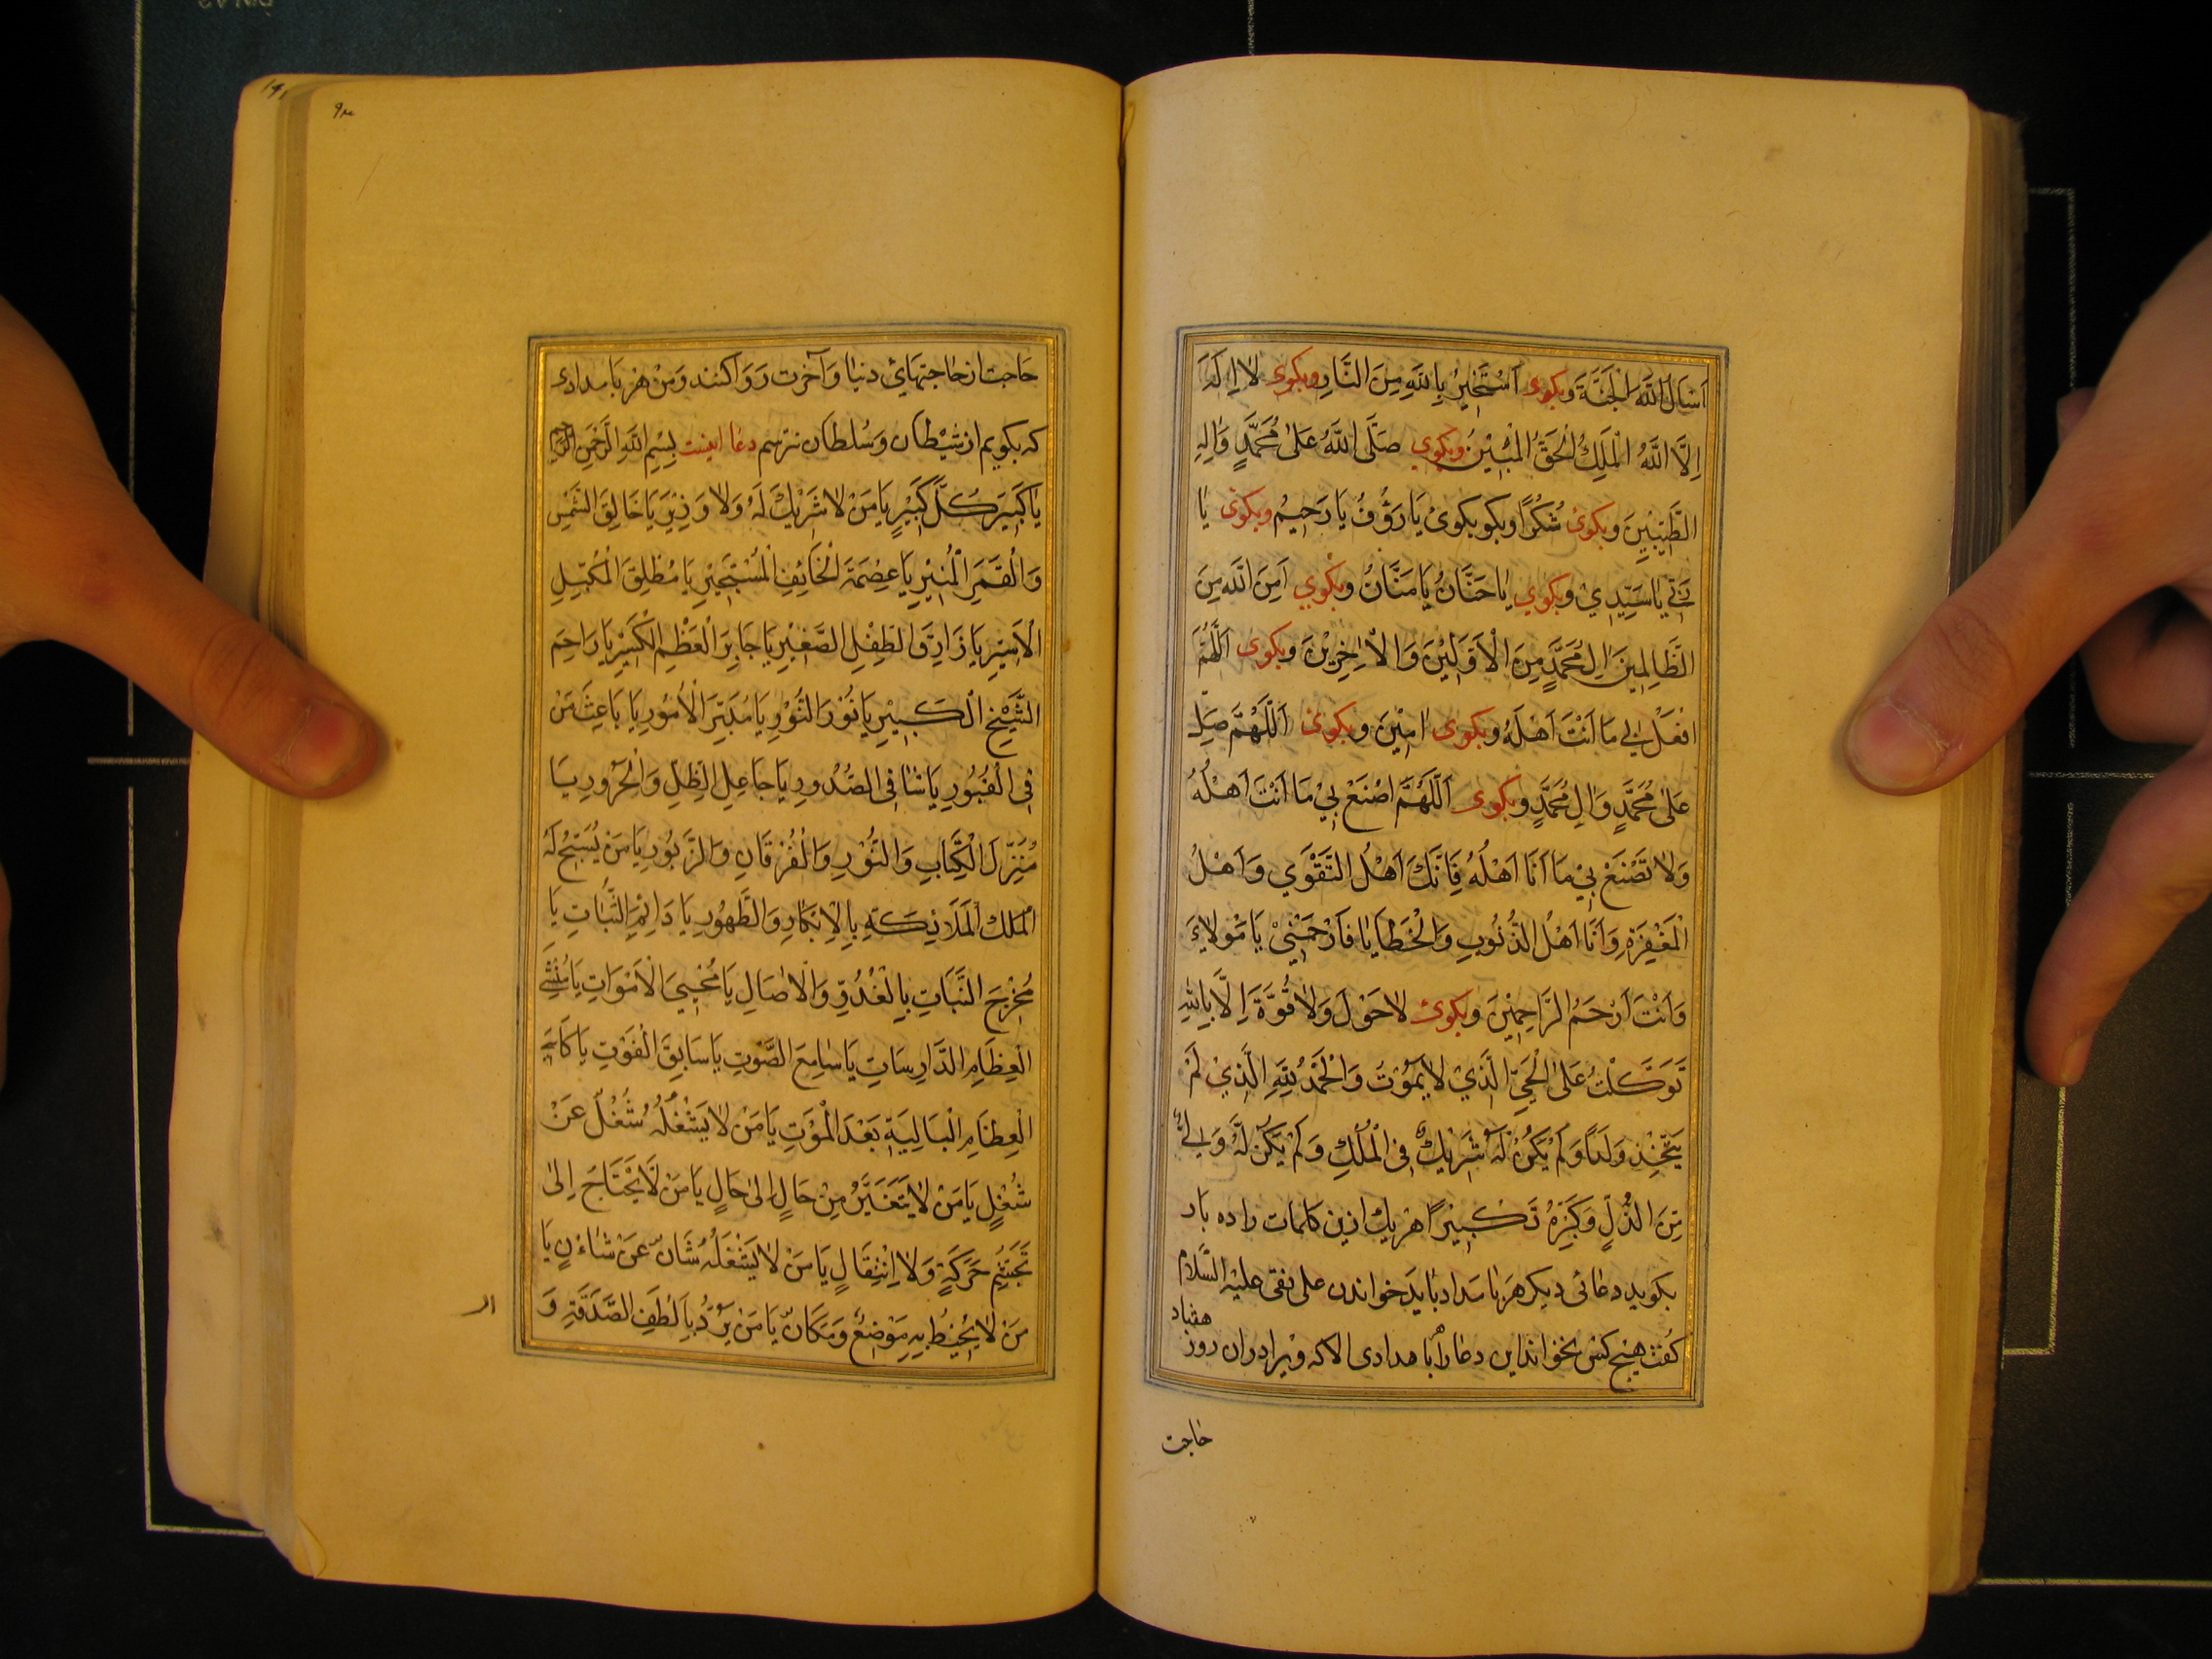 اَسْأَلُ اللّٰهَ الْجَنَّةَ وبکوی اَسْتَجِيْرُ بِاللّٰهِ مِنَ النَّارِ وبکوی لا اِلٰهَ
اِلَّا اللّٰهُ الْمَلِكُ الْحَقُّ الْمُبِيْنُ وبکوي صَلَّى اللّٰهُ عَلىٰ مُحَمَّدٍ وَاٰلِهِ
الطَّيِّبِيْنَ وبکوی شُكْرًا وبکو بکوی يَا رَؤُفُ يَا رَحِيْمُ وبکوی يَا
رَبِّي يَا سَيِّدِيْ وبکوي يَا حَنَّانُ يَا مَنَّانُ وبکوي اللّٰهُ مِنَ
الظَّالِمِيْنَ اٰلِ مُحَمَّدٍ مِنَ الْاَوَّلِيْنَ وَالْاٰخِرِيْنَ وبکوی اَللّٰهُمَّ
افْعَلْ بِي مَا اَنْتَ اَهْلُهُ وبکوی اٰمِيْنَ وبکوی اَللّٰهُمَّ صَلِّ
عَلىٰ مُحَمَّدٍ وَاٰلِ مُحَمَّدٍ وبکوی اَللّٰهُمَّ اصْنَعْ بِيْ مَا اَنْتَ اَهْلُهُ
وَلا تَصْنَعْ بِيْ مَا اَنَا اَهْلُهُ فَاِنَّكَ اَهْلُ التَّقْوَي وَاَهْلُ
الْمَغْفِرَةِ وَاَنَا اَهْلُ الذُّنُوبِ وَالْخَطَايَا فَارْحَمْنِيْ يَا مَوْلايَ
وَاَنْتَ اَرْحَمُ الرَّاحِمِيْنَ وبکوی لاحَوْلَ وَلا قُوَّةَ اِلَّا بِاللّٰهِ
تَوَكَّلْتُ عَلَى الْحَيِّ الَّذِيْ لا يَمُوْتُ وَالْحَمْدُ لِلّٰهِ الَّذِيْ لَمْ
يَتَّخِذْ وَلَدًا وَلَمْ يَكُنْ لَهُ شَرِيْكٌ فِي الْمُلْكِ وَلَمْ يَكُنْ لَهُ وَلِيٌّ
مِنَ الذُّلِّ وَكَبِّرْهُ تَكْبِيْرًا هریك ازین کلمات را ده بار
بکوید دعائی دیکر هر بامداد باید خواندن علی نقی علیه السّلام
کفت هیچ کس نخواند این دعا را هر بامدادی الا که ویرا دران روز هفتاد
حاجت
حاجت از حاجتهائ دنیا وآخرت روا کنند ومن هر بامدادی
که بکویم از شیطان وسلطان نترسم دعا اینست بِسْمِ اللّٰهِ الرَّحْمٰنِ الرَّحِيْمِ
يَا كَبِيْرَ كُلِّ كَبِيْرٍ يَا مَنْ لا شَرِيْكَ لَهُ وَلا وَزِيْرَ يَا خَالِقَ الشَّمْسِ
وَالْقَمَرِ الْمُنِيْرِ يَا عِصْمَةَ الْخَائِفِ الْمُسْتَجِيْرِ يَا مُطْلِقَ الْمُكَبَّلِ
الْاَسِيْرِ يَا رَازِقَ الطِّفْلِ الصَّغِيْرِ يَا جَابِرَ الْعَظْمِ الْكَسِيْرِ يَا رَاحِمَ
الشَّيْخِ الْكَبِيْرِ يَا نُوْرَ النُّوْرِ يَا مُدَبِّرَ الْاُمُوْرِ يَا بَاعِثَ مَنْ
فِي الْقُبُوْرِ يَا شَافِيَ الصُّدُورِ يَا جَاعِلَ الظِّلِّ وَالْحَرُورِ يَا
مُنْزِلَ الْكِتَابِ وَالنُّوْرِ وَالْفُرْقَانِ وَالزَّبُورِ يَا مَنْ يُسَبِّحُ لَهُ
الْمَلٰٓئِكَةُ بِالْاِبْكَارِ وَالظُّهُورِ يَا دَائِمَ الثَّبَاتِ يَا
مُخْرِجَ النَّبَاتِ بِالْغُدُوِّ وَالْاٰصَالِ يَا مُحْيِيَ الْاَمْوَاتِ يَا مُنْشِئَ
الْعِظَامِ الدَّارِسَاتِ يَا سَامِعَ الصَّوْتِ يَا سَابِقَ الْفَوْتِ يَا كَاسِيَ
الْعِظَامِ الْبَالِيَةِ بَعْدَ الْمَوْتِ يَا مَنْ لا يَشْغَلُهُ شُغْلٌ عَنْ
شُغْلٍ يَا مَنْ لا يَتَغَيَّرُ مِنْ حَالٍ اِلىٰ حَالٍ يَا مَنْ لا يَحْتَاجُ اِلىٰ
تَجَشُّمِ حَرَكَةٍ وَلا اِنْتِقَالٍ يَا مَنْ لا يَشْغَلُهُ شَأنٌ عَنْ شَأنٍ يَا
مَنْ لا يُحِيْطُ بِهِ مَوْضِعٌ وَمَكَانٌ يَا مَنْ يَرُدُّ بِاَلْطَفِ الصَّدَقَةِ وَ